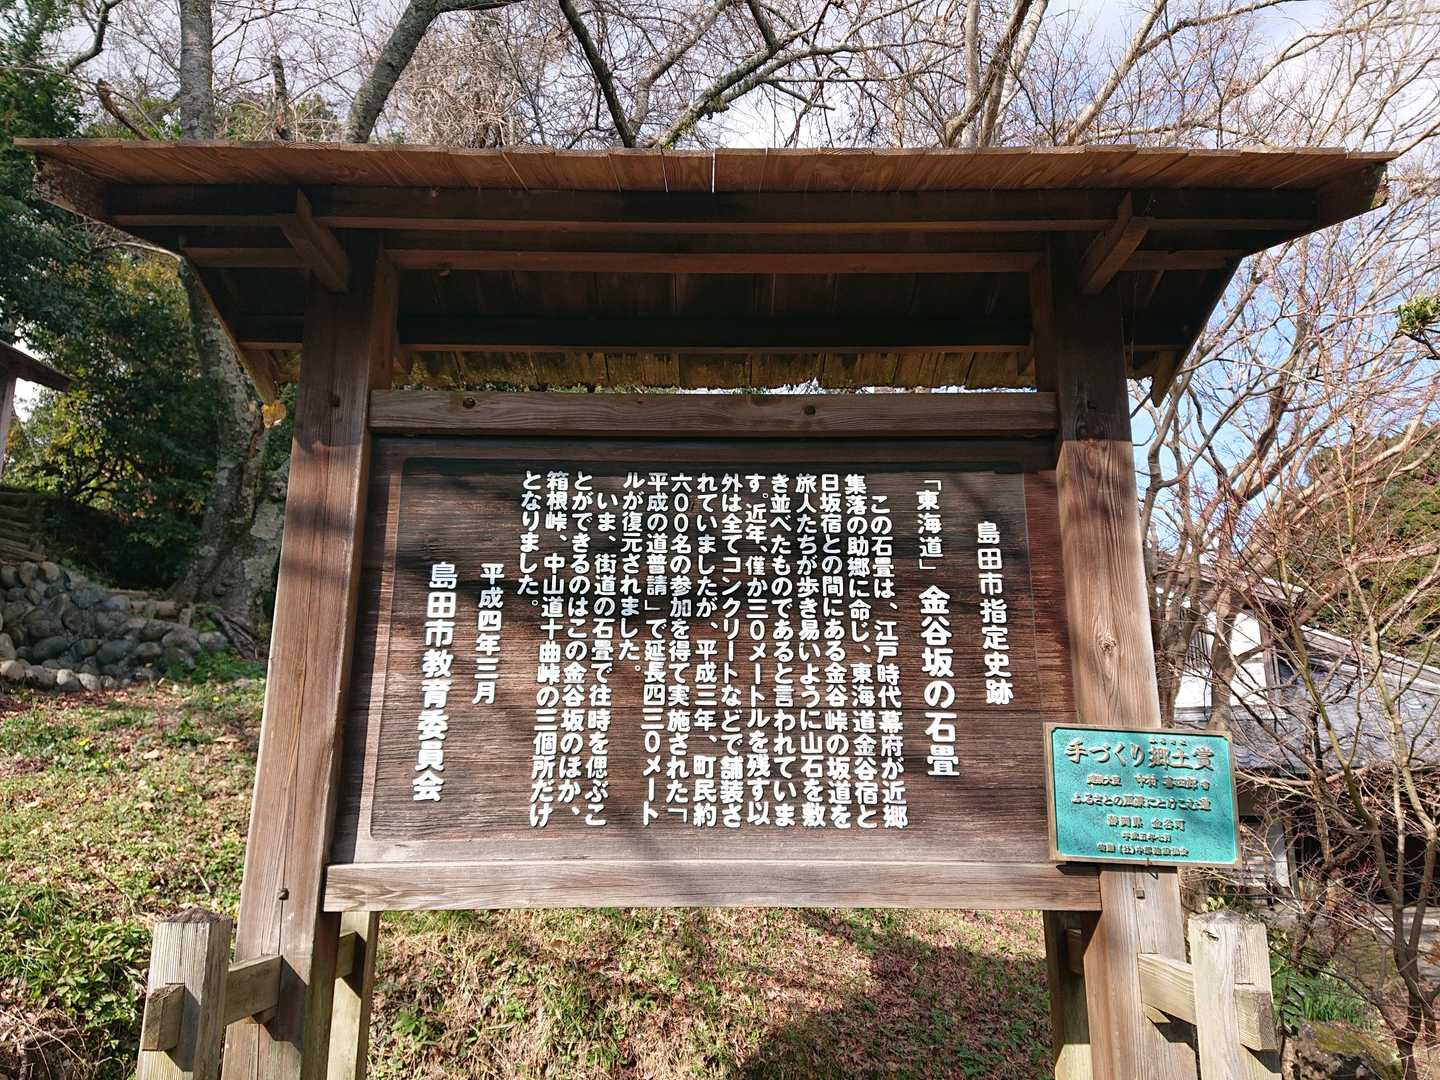 島田市指定史跡
「東海道」 金谷坂の石畳
この石畳は、江戸時代幕府が近郷
集落の助郷に命じ、東海道金谷宿と
日坂宿との間にある金谷峠の坂道を
旅人たちが歩き易いように山石を敷
き並べたものであると言われていま
す。近年、僅か三〇メートルを残す以
外は全てコンクリートなどで舗装さ
れていましたが、平成三年、町民約
六〇〇名の参加を得て実施された「
平成の道普請」で延長四三〇メート
ルが復元されました。
いま、街道の石畳で往時を偲ぶこ
とができるのはこの金谷坂のほか、
箱根峠、中山道十曲峠の三個所だけ
となりました。
平成四年三月
島田市教育委員会
手づくり郷土賞
ふるさとの風景にとけこむ道
静岡県 金谷町
平成五年七月